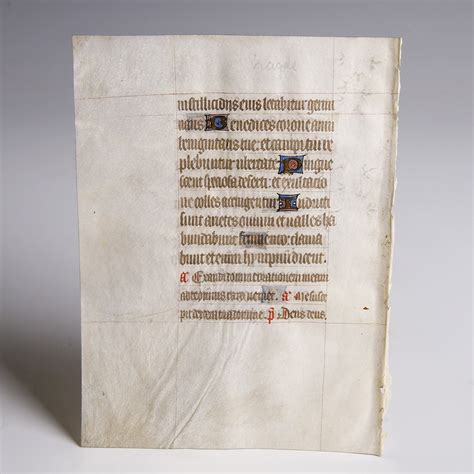 in stillicidijs eius letabitur germi
nans Benedices corone anni
benignitatis tue: et campi tui re
plebuntur ubertate Pingue
scent speciosa deserti: et exultatio
ne colles accingentur Induti
sunt arietes ouium et ualles ha
bundabunt frumento: clama
bunt etenim hympnum dicent.
a Exaudi domine orationem meam
ad te omnis caro ueniet. a Me susce
pit dextera tua domine. p̄ Deus deus.